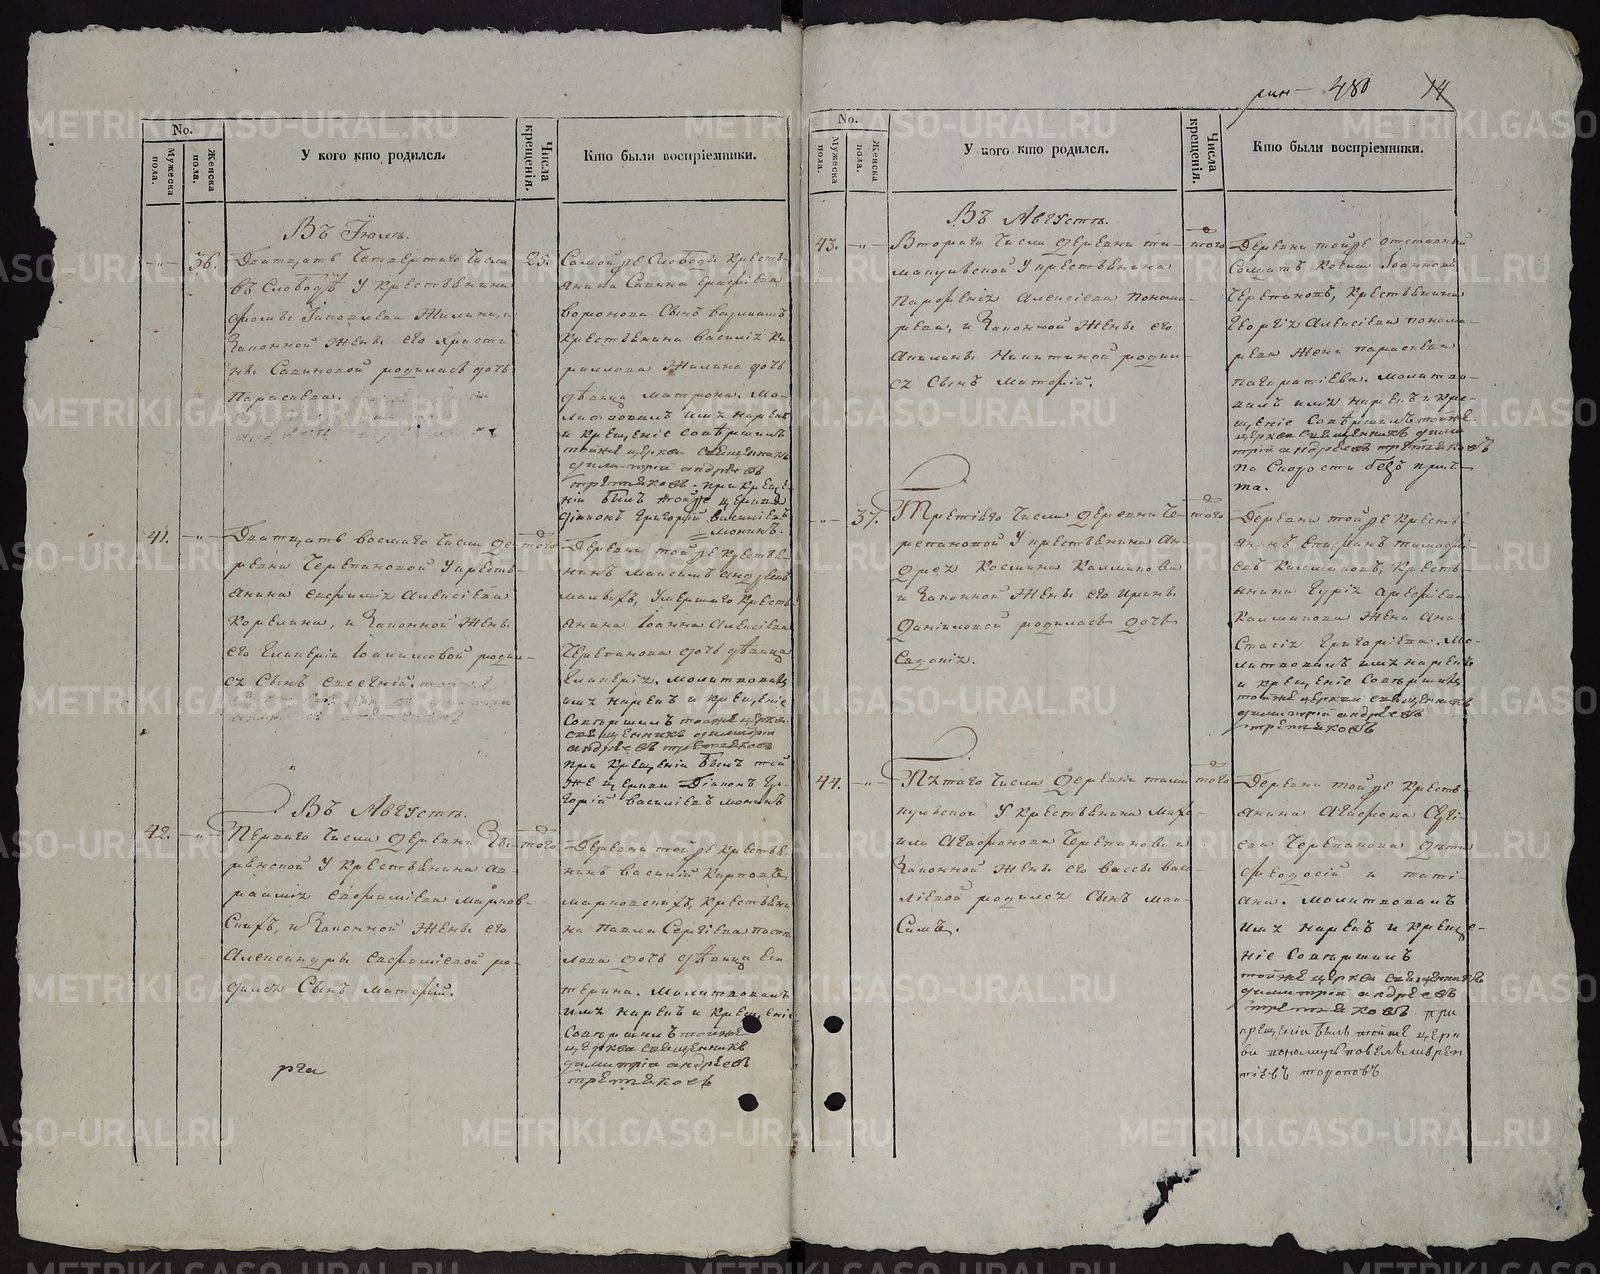 480 14
No.
Мужеска пола.
Женска пола.
У кого кто родился.
Числа крещенія.
Кто были воспріемники.
Въ Іюлѣ.
36.
Дватцать Четвертаго Числа
въ Слободѣ У Крестьянина
Жилина, и
Законной Жены его Христи
ны Савиновой родилась дочь
Параскева.
25.
Самой же Слободы Кресть-
янина Савина
воронова Сынъ
Крестьянина василія Ки
риллова Жилина дочь
дѣвица матрона. Мо-
литвовалъ имя нарекъ
и крещеніе совершилъ
тойже церкви священникъ
димитрій андреевъ
третьяковъ. при креще
ніи былъ тойже церкви
діяконъ григорій василіевъ
мокинъ.
41.
Дватцать восмаго Числа де-
ревни Черепановой У кресть-
янина евфимія Алексіева
Корелина, и Законной Жены
его Гликеріи Іоакимовой родил-
ся Сынъ евгеній.
того
Деревни той же крестья-
нинъ максимъ андреевъ
мальыхъ, Умершаго кресть-
янина Іоанна Алексіева
Черепанова дочь дѣвица
Гликерія. молитвовалъ
имя нарекъ и крещеніе
Совершилъ тойже церкви
священникъ димитрій
андреевъ третьяковъ
при крещеніи былъ той
же церкви Діаконъ Гри-
горій василіевъ мокинъ
Въ Августѣ.
42.
Перваго Числа Деревни
У крестьянина ав
раамія евфиміева Марков-
Скихъ, и Законной Жены его
Александры евфиміевой ро-
дился Сынъ матфій.
того
Деревни той же крестья-
нинъ василій Карповъ
марковскихъ, крестьяни
на Павла Сергіева
дочь дѣвица Ека
терина. молитвовалъ
имя нарекъ и крещеніе
Совершилъ тойже
церкви священникъ
димитрій андреевъ
третьяковъ
No.
Мужеска пола.
Женска пола.
У кого кто родился.
Числа крещенія.
Кто были воспріемники.
Въ Августѣ.
43.
Втораго Числа Деревни та-
макулской У крестьянина
Парфенія алексіева понома-
рева, и Законной Жены его
Акилины Никитиной родил-
ся Сынъ матфій.
того
Деревни той же отставной
Солдатъ Косма Іоанновъ
Черепановъ, крестьянина
Георгія Алексіева понома-
рева жена параскева
панкратіева. молитво-
валъ имя нарекъ и кре-
щеніе Совершилъ тойже
церкви священникъ дими
трій андреевъ третьяковъ
по Скорости безъ прич-
та.
37.
Третіяго Числа Деревни Че-
репановой У крестьянина Ан-
дрея Космина Калмакова
и Законной Жены его Ирины
Даніиловой родилась Дочь
Евдокія.
того
Деревни той же кресть
янинъ епифанъ тимофі-
евъ Калмаковъ, Кресть-
янина Гурія Арефіева
Калмакова Жена Ана-
стасія Григоріева. Мо-
литвовалъ имя нарекъ
и крещеніе Совершилъ
тойже церкви священникъ
димитрій андреевъ
третьяковъ
44.
Пятаго Числа Деревни тама
кулской У Крестьянина Миха-
ила Агафонова Черепанова и
Законной Жены его вассы васи-
ліевой родился Сынъ мак-
Симъ.
того
Деревни той же кресть-
янина Агафона Сергі-
ева Черепанова дѣти
феодосій и тати
ана. молитвовалъ
имя нарекъ и креще-
ніе Совершилъ
тойже церкви священникъ
димитрій андреевъ
третьяковъ при
крещеніи былъ тойже церк
ви пономарь
топоповъ